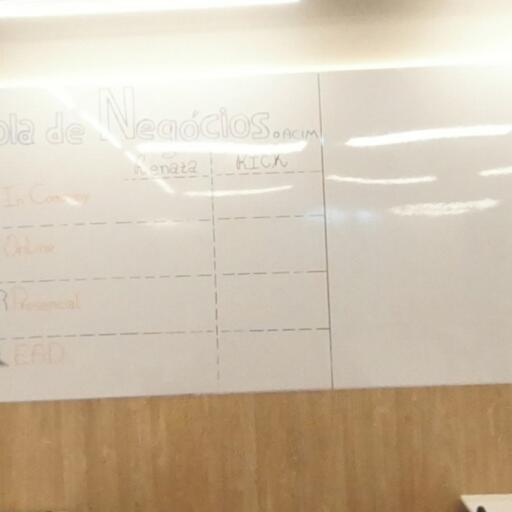 ola de Negócios. ACIM
Renata KICK
In Company
Online
R Presencial
EAD